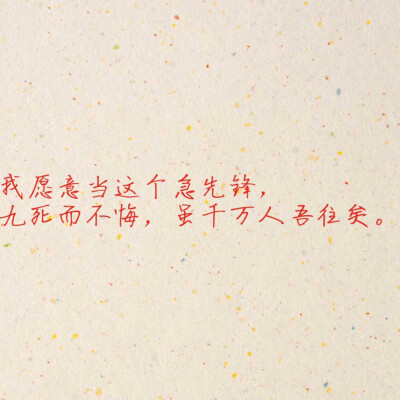 我愿意当这个急先锋，
九死而不悔，虽千万人吾往矣。